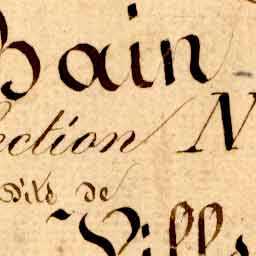 bain
ection N
dite de
Vill